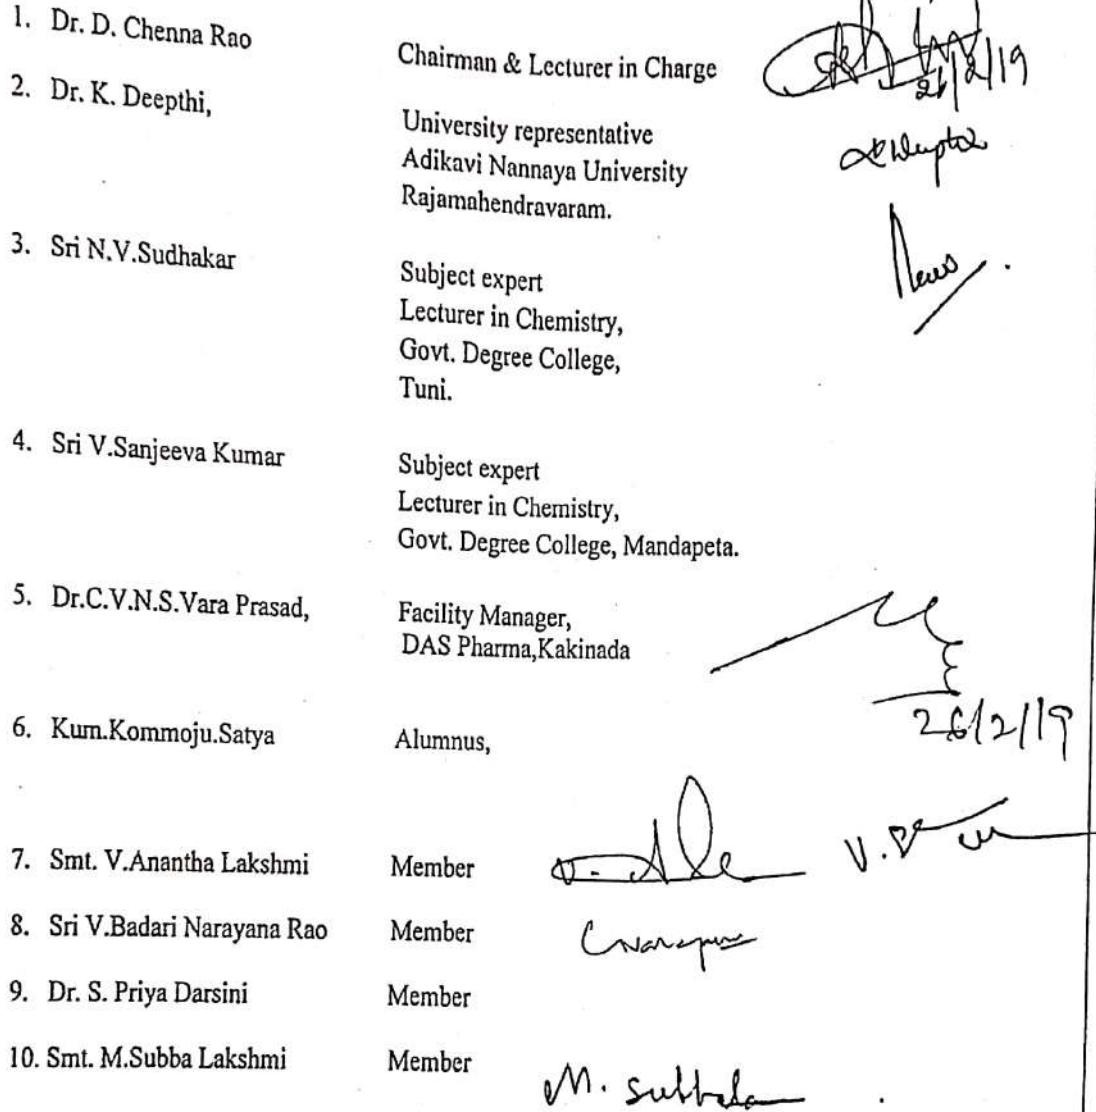 1. Dr. D. Chenna Rao
Chairman & Lecturer in Charge
21/2/19
2. Dr. K. Deepthi,
University representative
Adikavi Nannaya University
Rajamahendravaram.
3. Sri N.V.Sudhakar
Subject expert
Lecturer in Chemistry,
Govt. Degree College,
Tuni.
4. Sri V.Sanjeeva Kumar
Subject expert
Lecturer in Chemistry,
Govt. Degree College, Mandapeta.
5. Dr.C.V.N.S.Vara Prasad,
Facility Manager,
DAS Pharma,Kakinada
26/2/19
6. Kum.Kommoju.Satya
Alumnus,
7. Smt. V.Anantha Lakshmi
Member
8. Sri V.Badari Narayana Rao
Member
9. Dr. S. Priya Darsini
Member
10. Smt. M.Subba Lakshmi
Member